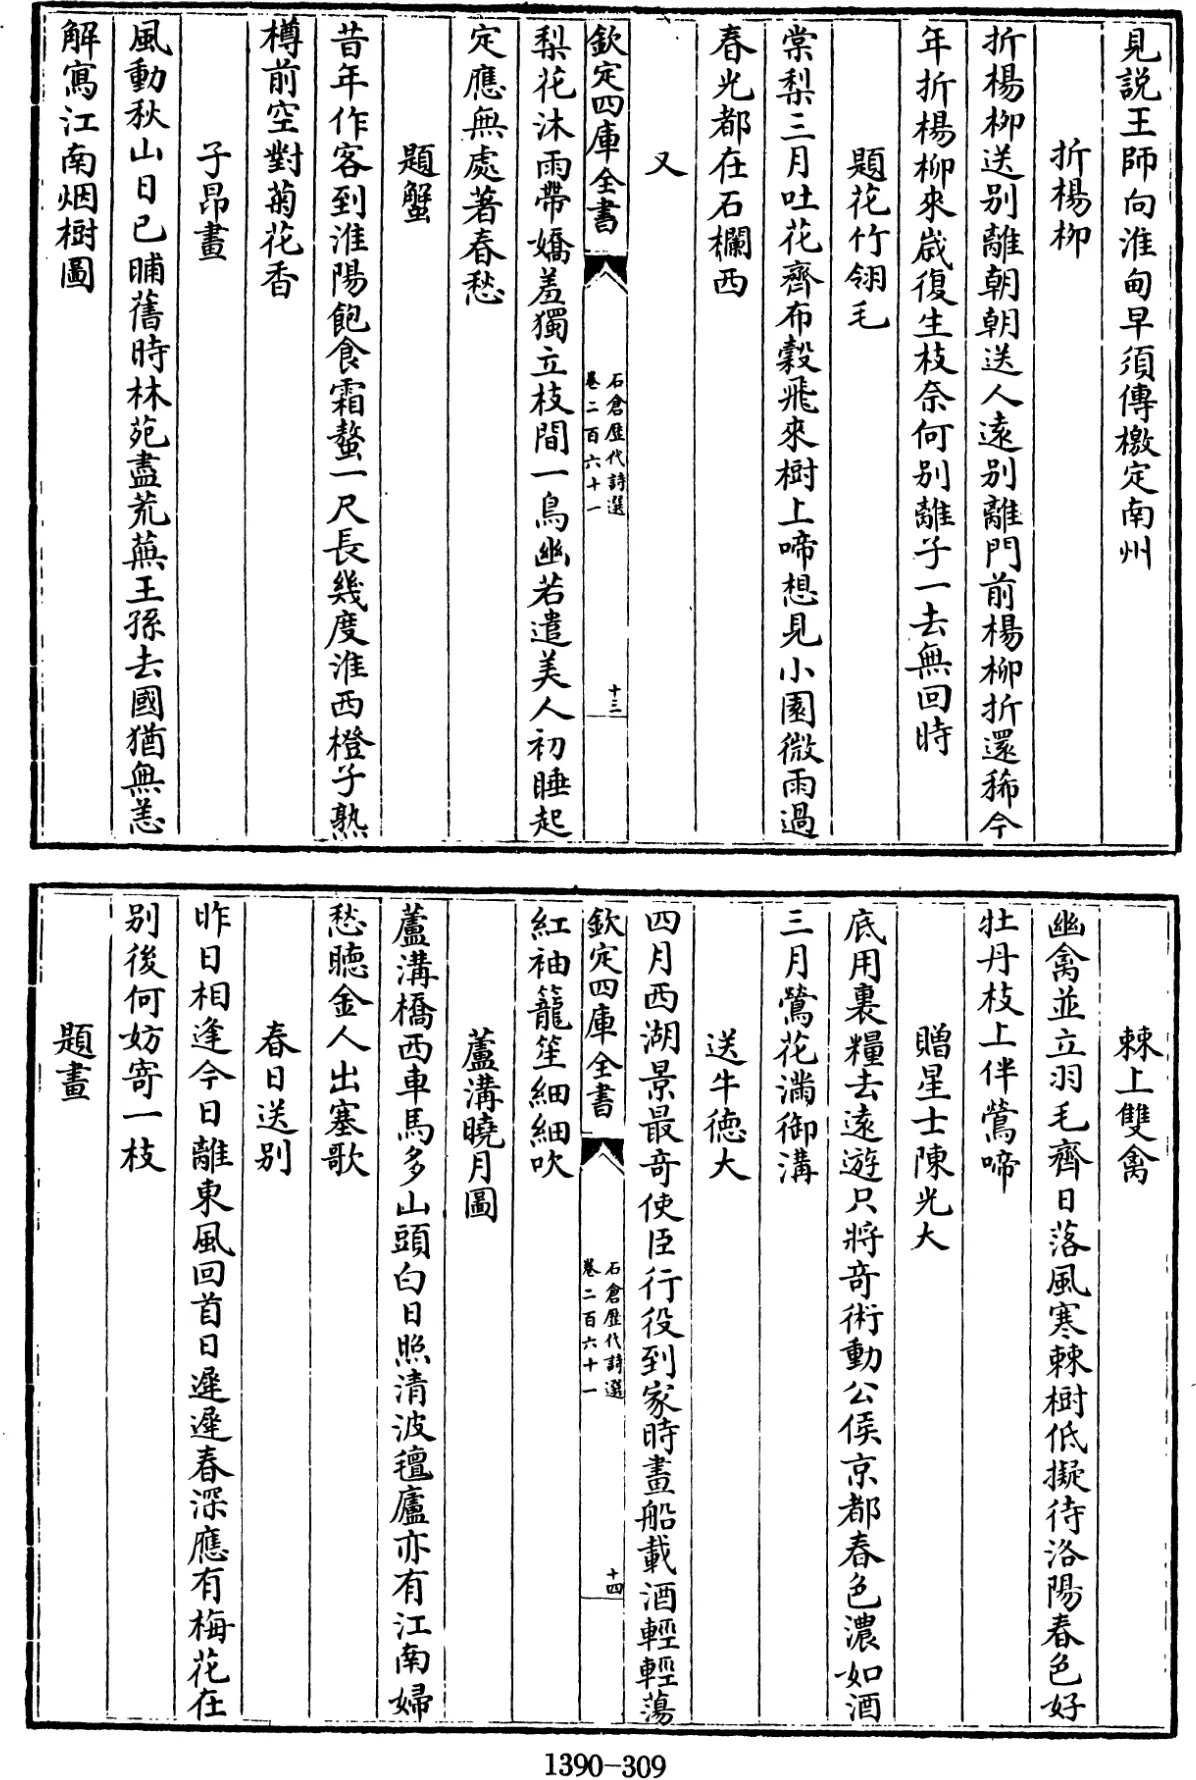 見說王師向淮甸早須傳檄定南州
折楊柳
折楊柳送别離朝朝送人遠别離門前楊柳折還稀今
年折楊柳來嵗復生枝奈何别離子一去無回時
題花竹翎毛
棠梨三月吐花齊布穀飛來樹上啼想見小園微雨過
春光都在石欄西
又
欽定四庫全書
石倉歴代詩選
卷二百六十一
十三
梨花沐雨帶嬌羞獨立枝間一鳥幽若遣美人初睡起
定應無處著春愁
題蟹
昔年作客到淮陽飽食霜螯一尺長幾度淮西橙子熟
樽前空對菊花香
子昂畫
風動秋山日已晡舊時林苑盡荒蕪王孫去國猶無恙
解寫江南烟樹圖
棘上雙禽
幽禽並立羽毛齊日落風寒棘樹低擬待洛陽春色好
牡丹枝上伴鶯啼
贈星士陳光大
底用裹糧去遠遊只將竒術動公侯京都春色濃如酒
三月鶯花滿御溝
送牛德大
四月西湖景最竒使臣行役到家時畫船載酒輕輕蕩
欽定四庫全書
石倉歴代詩選
卷二百六十一
十四
紅袖籠笙細細吹
蘆溝曉月圖
蘆溝橋西車馬多山頭白日照清波氊廬亦有江南婦
愁聽金人出塞歌
春日送别
昨日相逢今日離東風回首日遲遲春深應有梅花在
别後何妨寄一枝
題畫
1390-309